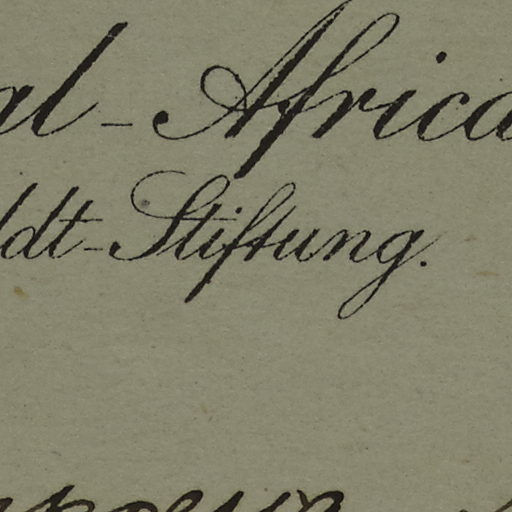 al-Africa
ldt-Stiftung.